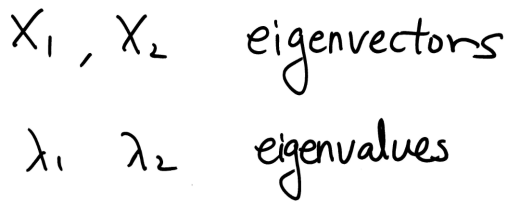 X₁, X₂ eigenvectors
λ₁ λ₂ eigenvalues